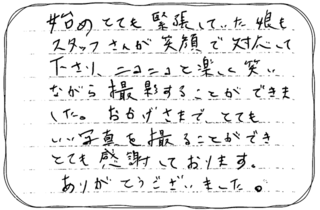 始めとても緊張していた娘も
スタッフさんが笑顔で対応して
下さり、ニコニコと楽しく笑い
ながら撮影することができま
した。おかげさまで、とても
いい写真を撮ることができ
とても感謝しております。
ありがとうございました。